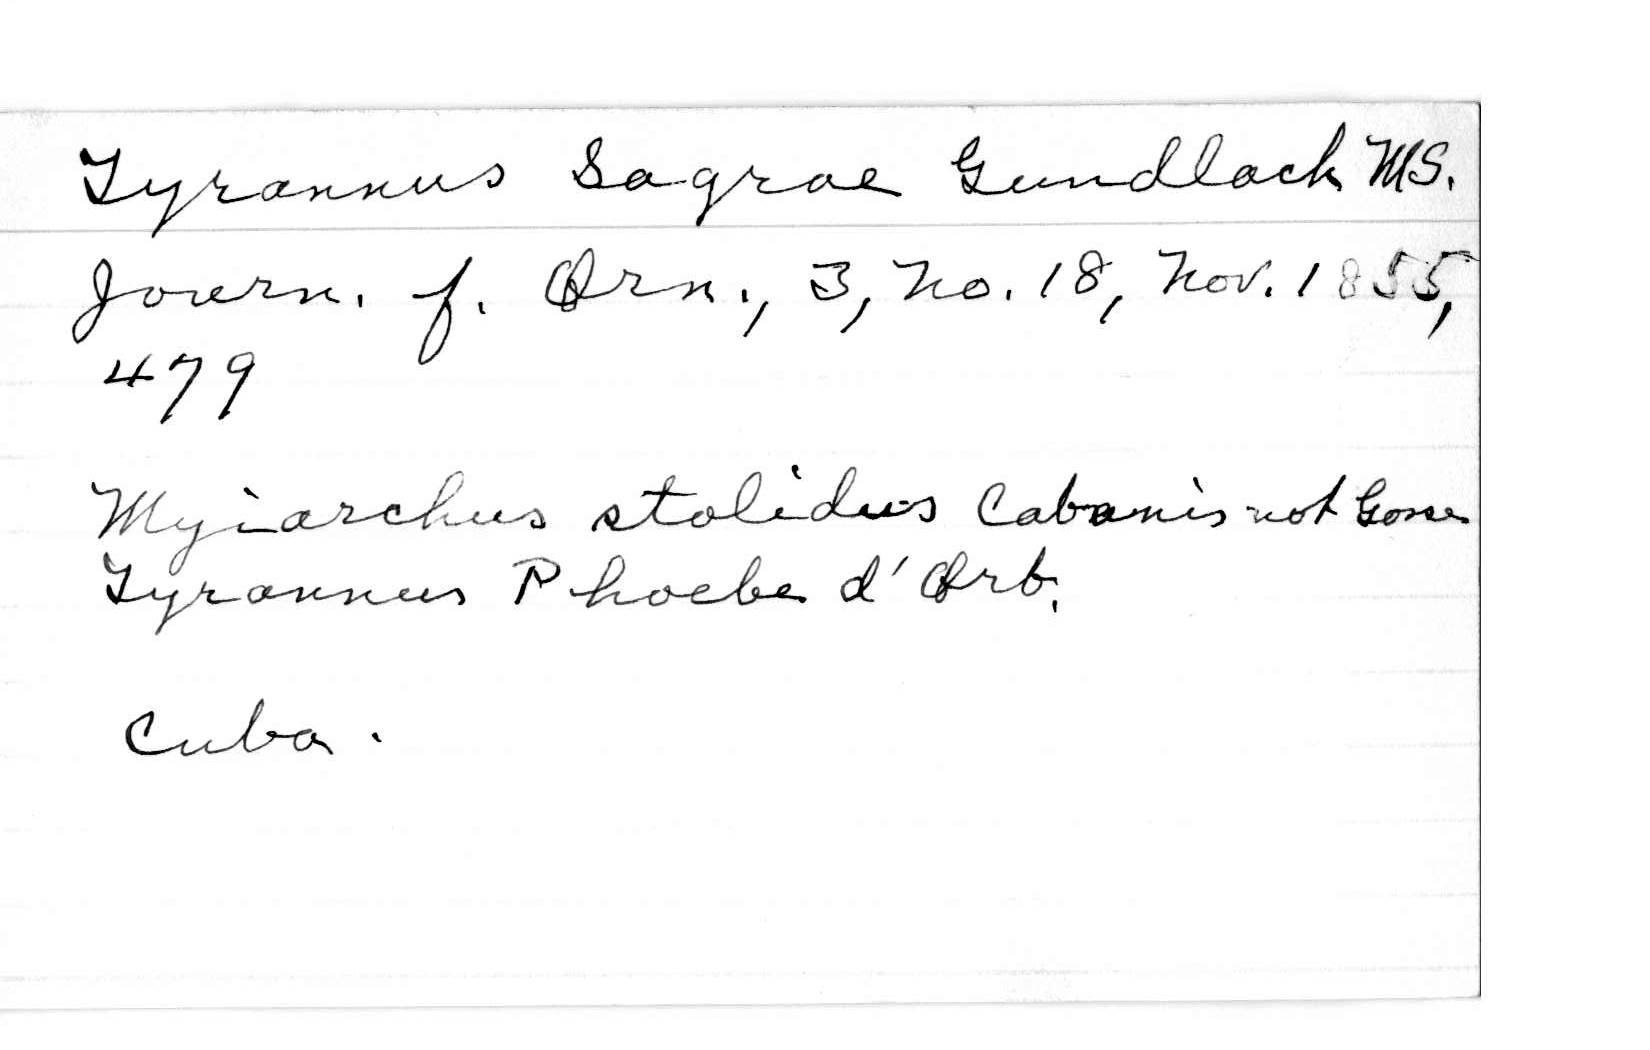 Tyrannus Sagrae Gundlach MS.
Journ. f. Orn., 3, no. 18, Nov. 1855,
479
Myiarchus stolidus Cabanis not Gosse
Tyrannus Phoebe d'Orb.
Cuba.